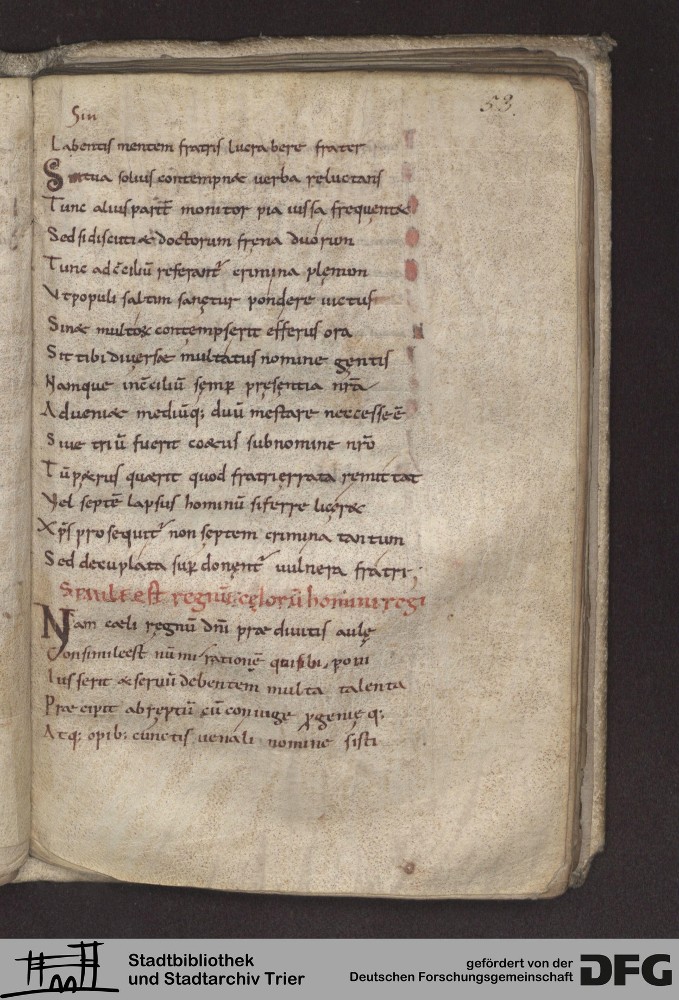 53.
Sin
Labentis mentem fratris lucrabere frater
Sin tua soluis contempnæ uerba reluctans
Tunc alius partĩ monitor pia iussa frequentæ
Sed si discutiæ doctorum frena duorum
Tunc ad c̄ciliũ referant᷑ crimina plęnum
Vt populi saltim sanętur pondere uictus
Sin& multox contempserit efferus ora
Sit tibi diuersæ multatus nomine gentis
Namque in c̄ciliũ sęmꝑ pręsentia nr̃a
Adueniæ mediũq; duũ me stare neccesse ē
Siue triũ fuerit coætus sub nomine nr̃o
Tũ pærus quærit quod fratri errata remittat
Vel septē lapsus hominũ si ferre licer&
Xp̃s prosequit᷑ non septem crimina tantum
Sed decuplata suꝑ donent᷑ uulnera fratri;
Simile est regnũ cęlorũ homini regi
Nam cæli regnũ dñi præ diuitis aulę
Consimile est nũmi rationē qui sibi poni
Iusserit & seruũ debentem multa talenta
Præcipit abreptũ cũ coniuge ꝓgenię q;
Atq; opib; cunctis uenali nomine sisti
Stadtbibliothek
und Stadtarchiv Trier
gefördert von der
Deutschen Forschungsgemeinschaft
DFG